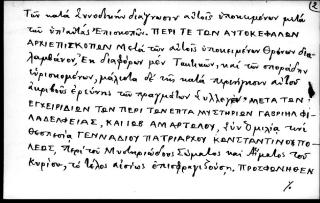 Τῶν κατὰ Συνοδικὴν διάγνωσιν αὐτοῖς ὑποκειμένων μετὰ
τῶν ὑπ' αὐτοὺς Ἐπισκοπῶν. ΠΕΡΙ ΤΕ ΤΩΝ ΑΥΤΟΚΕΦΑΛΩΝ
ΑΡΧΙΕΠΙΣΚΟΠΩΝ Μετὰ τῶν αὐτοῖς ὑποκειμένων Θρόνων δια-
λαμβάνον. Ἐκ διαφόρων μὲν Τακτικῶν, καὶ τῶν σποράδην
εὑρισκομένων, μάλιστα δὲ τῆς κατὰ περιήγησιν αὐτοῦ
ἀκριβοῦς ἐρεύνης τῶν πραγμάτων Συλλεγὲν ΜΕΤΑ ΤΩΝ
ΕΓΧΕΙΡΙΔΙΩΝ ΤΩΝ ΠΕΡΙ ΤΩΝ ΕΠΤΑ ΜΥΣΤΗΡΙΩΝ ΓΑΒΡΙΗΛ ΦΙ-
ΛΑΔΕΛΦΕΙΑΣ, ΚΑΙ ΙΩΒ ΑΜΑΡΤΩΛΟΥ, Σὺν Ὁμιλίᾳ τινὶ
Θεοπεσίᾳ ΓΕΝΝΑΔΙΟΥ ΠΑΤΡΙΑΡΧΟΥ ΚΩΝΣΤΑΝΤΙΝΟΥΠΟ-
ΛΕΩΣ, Περὶ τοῦ Μυστηριώδους Σώματος καὶ Αἵματος τοῦ
Κυρίου, τὸ τέλος αἰσίως ἐπισφραγιζούσῃ. ΠΡΟΣΦΩΝΗΘΕΝ